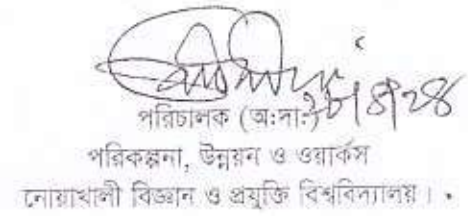 ২৮/৪/২৪
পরিচালক (অ:দা:)
পরিকল্পনা, উন্নয়ন ও ওয়ার্কস
নোয়াখালী বিজ্ঞান ও প্রযুক্তি বিশ্ববিদ্যালয়।